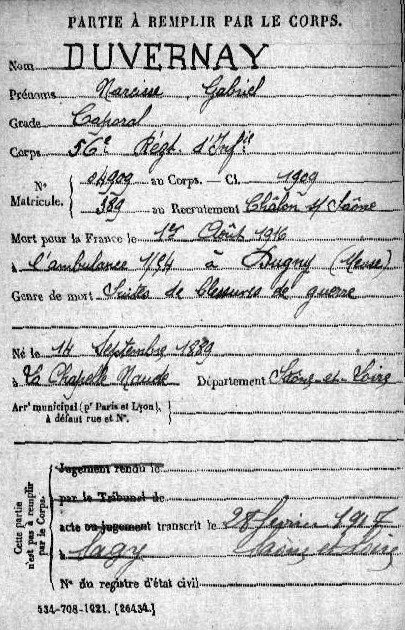 PARTIE À REMPLIR PAR LE CORPS.
Nom DUVERNAY
Prénoms Narcisse Gabriel
Grade Caporal
Corps 56e Régt d'Infie
N° Matricule. 04909 au Corps. — Cl. 1909
389 au Recrutement Châlon s/ Saône
Mort pour la France le 1er Août 1916
à l'ambulance 1/94 à Dugny (Meuse)
Genre de mort Suites de blessures de guerre
Né le 14 Septembre 1889
à La Chapelle Naude Département Saône-et-Loire
Arrt municipal (pr Paris et Lyon),
à défaut rue et N°.
Cette partie n'est pas à remplir par le Corps.
Jugement rendu le
par le Tribunal de
acte ou jugement transcrit le 28 février 1917
à Sagy Saône et Loire
N° du registre d'état civil
534-708-1921. [26434.]